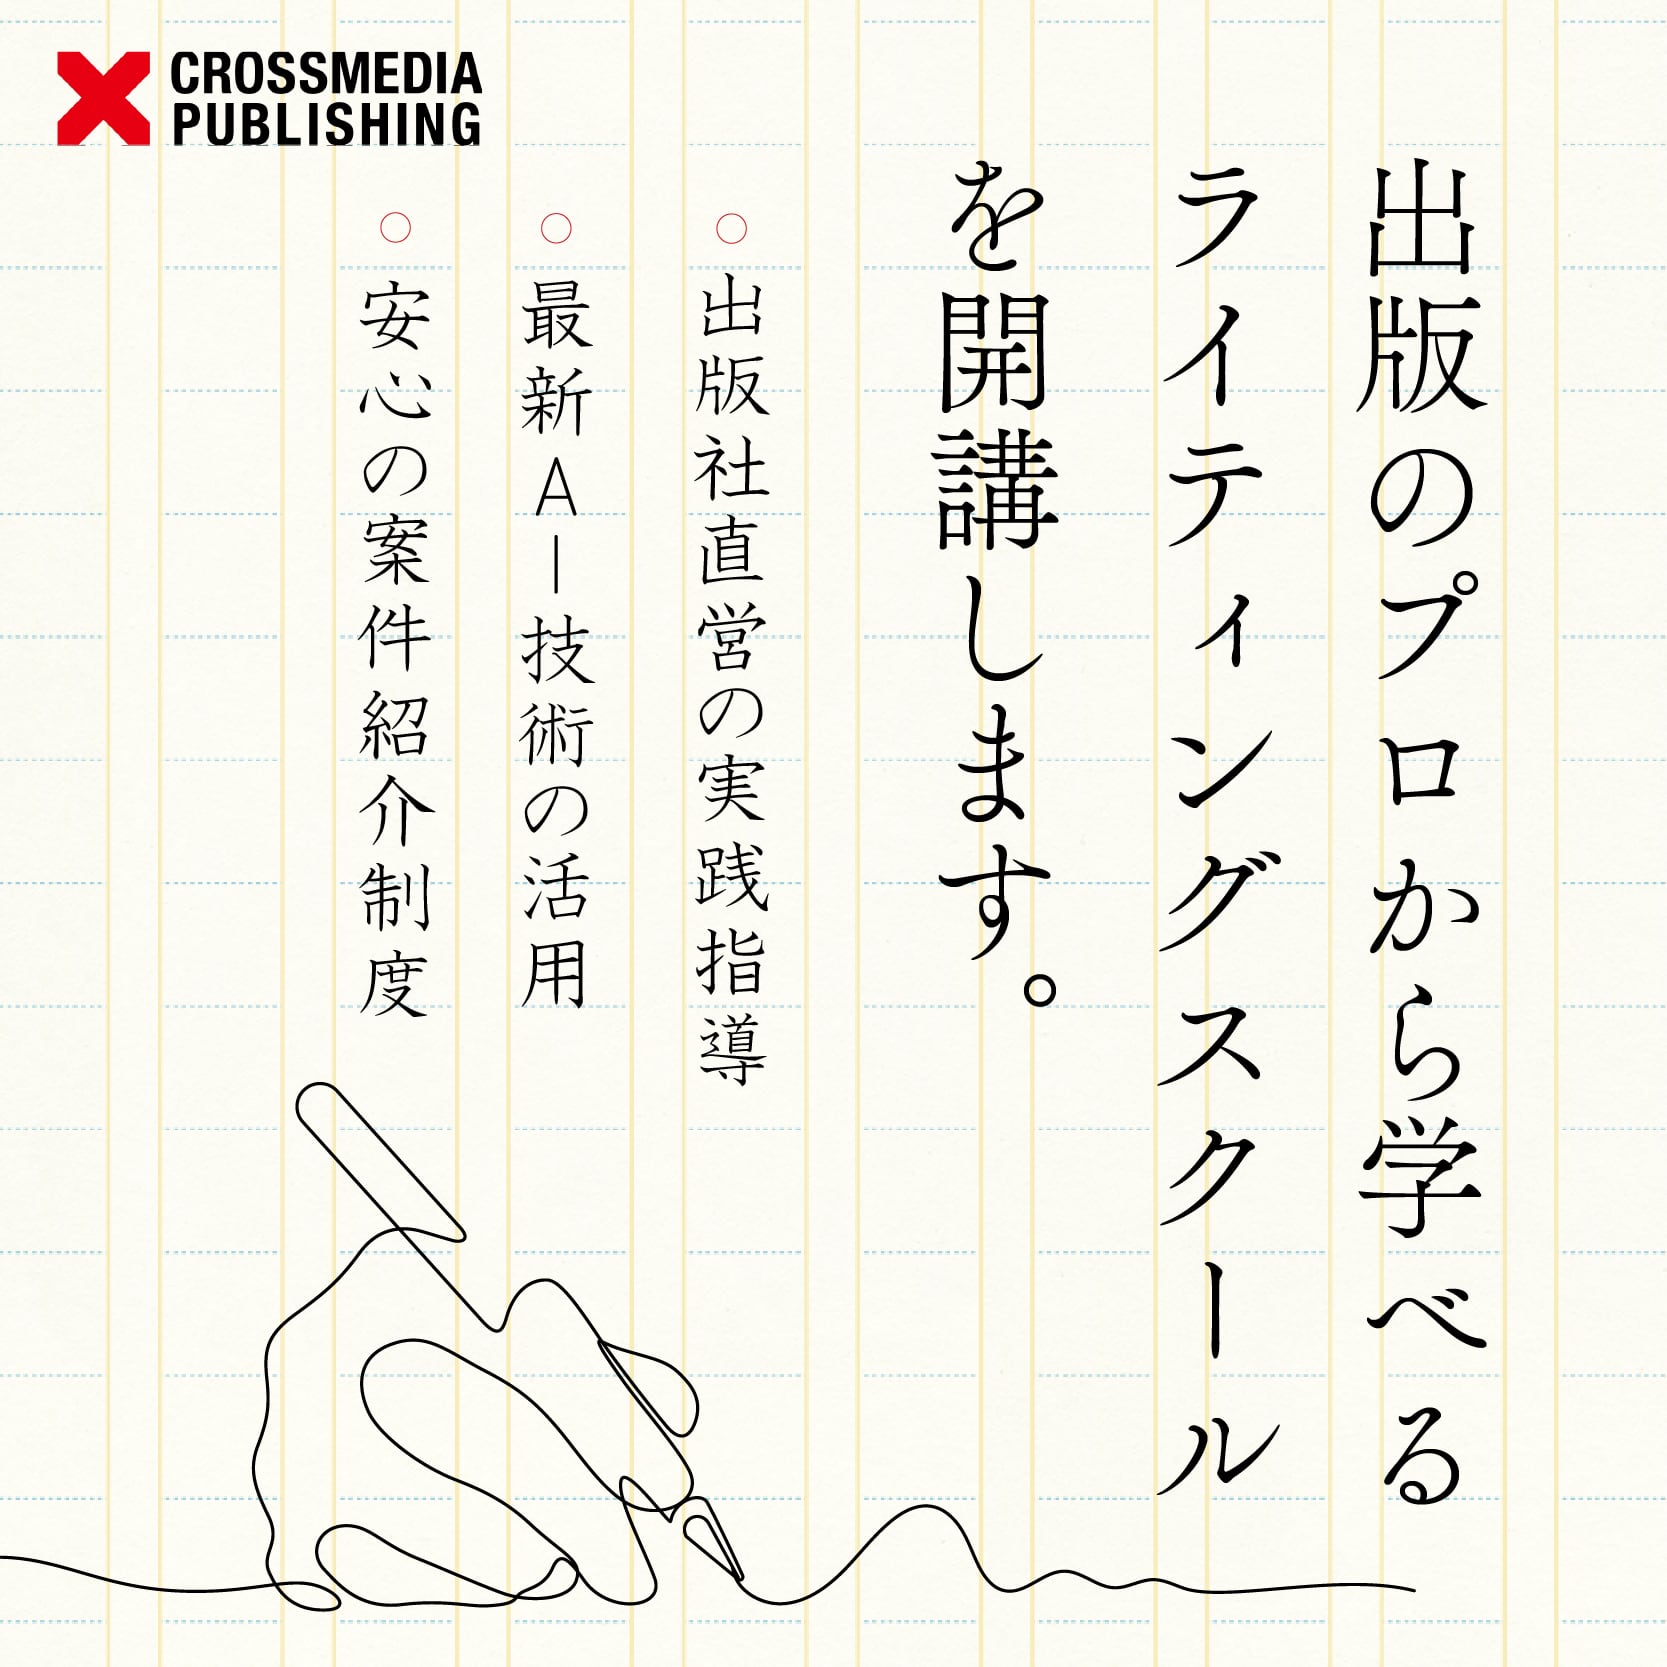 CROSSMEDIA
PUBLISHING
出版のプロから学べる
ライティングスクール
を開講します。
○出版社直営の実践指導
○最新AI技術の活用
○安心の案件紹介制度